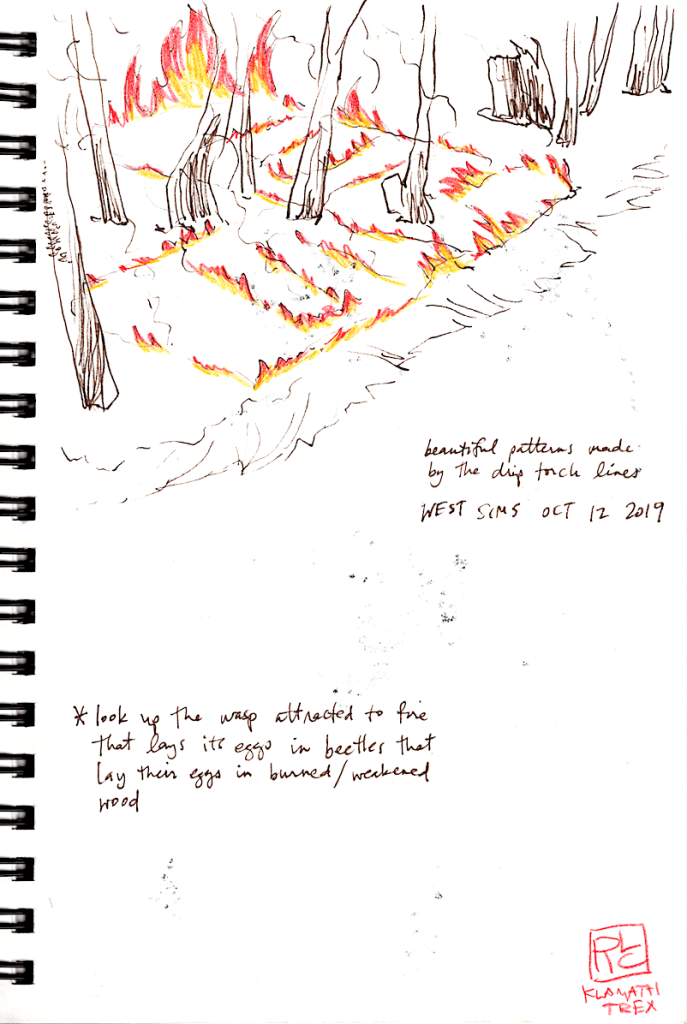 beautiful patterns made
by The drip torch lines
WEST SIMS OCT 12 2019
* look up the wasp attracted to fire
that lays its eggs in beetles that
lay their eggs in burned/weakened
wood
RLC
KLAMATH
TREX